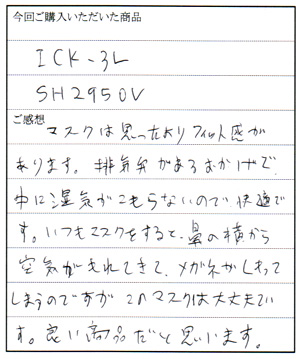 今回ご購入いただいた商品
ICK-3L
SH2950V
ご感想
マスクは思ったよりフィット感が
あります。排気弁があるおかげで、
中に湿気がこもらないので快適で
す。いつもマスクをすると、鼻の横から
空気がもれてきて、メガネがくもって
しまうのですがこのマスクは大丈夫で
す。良い商品だと思います。